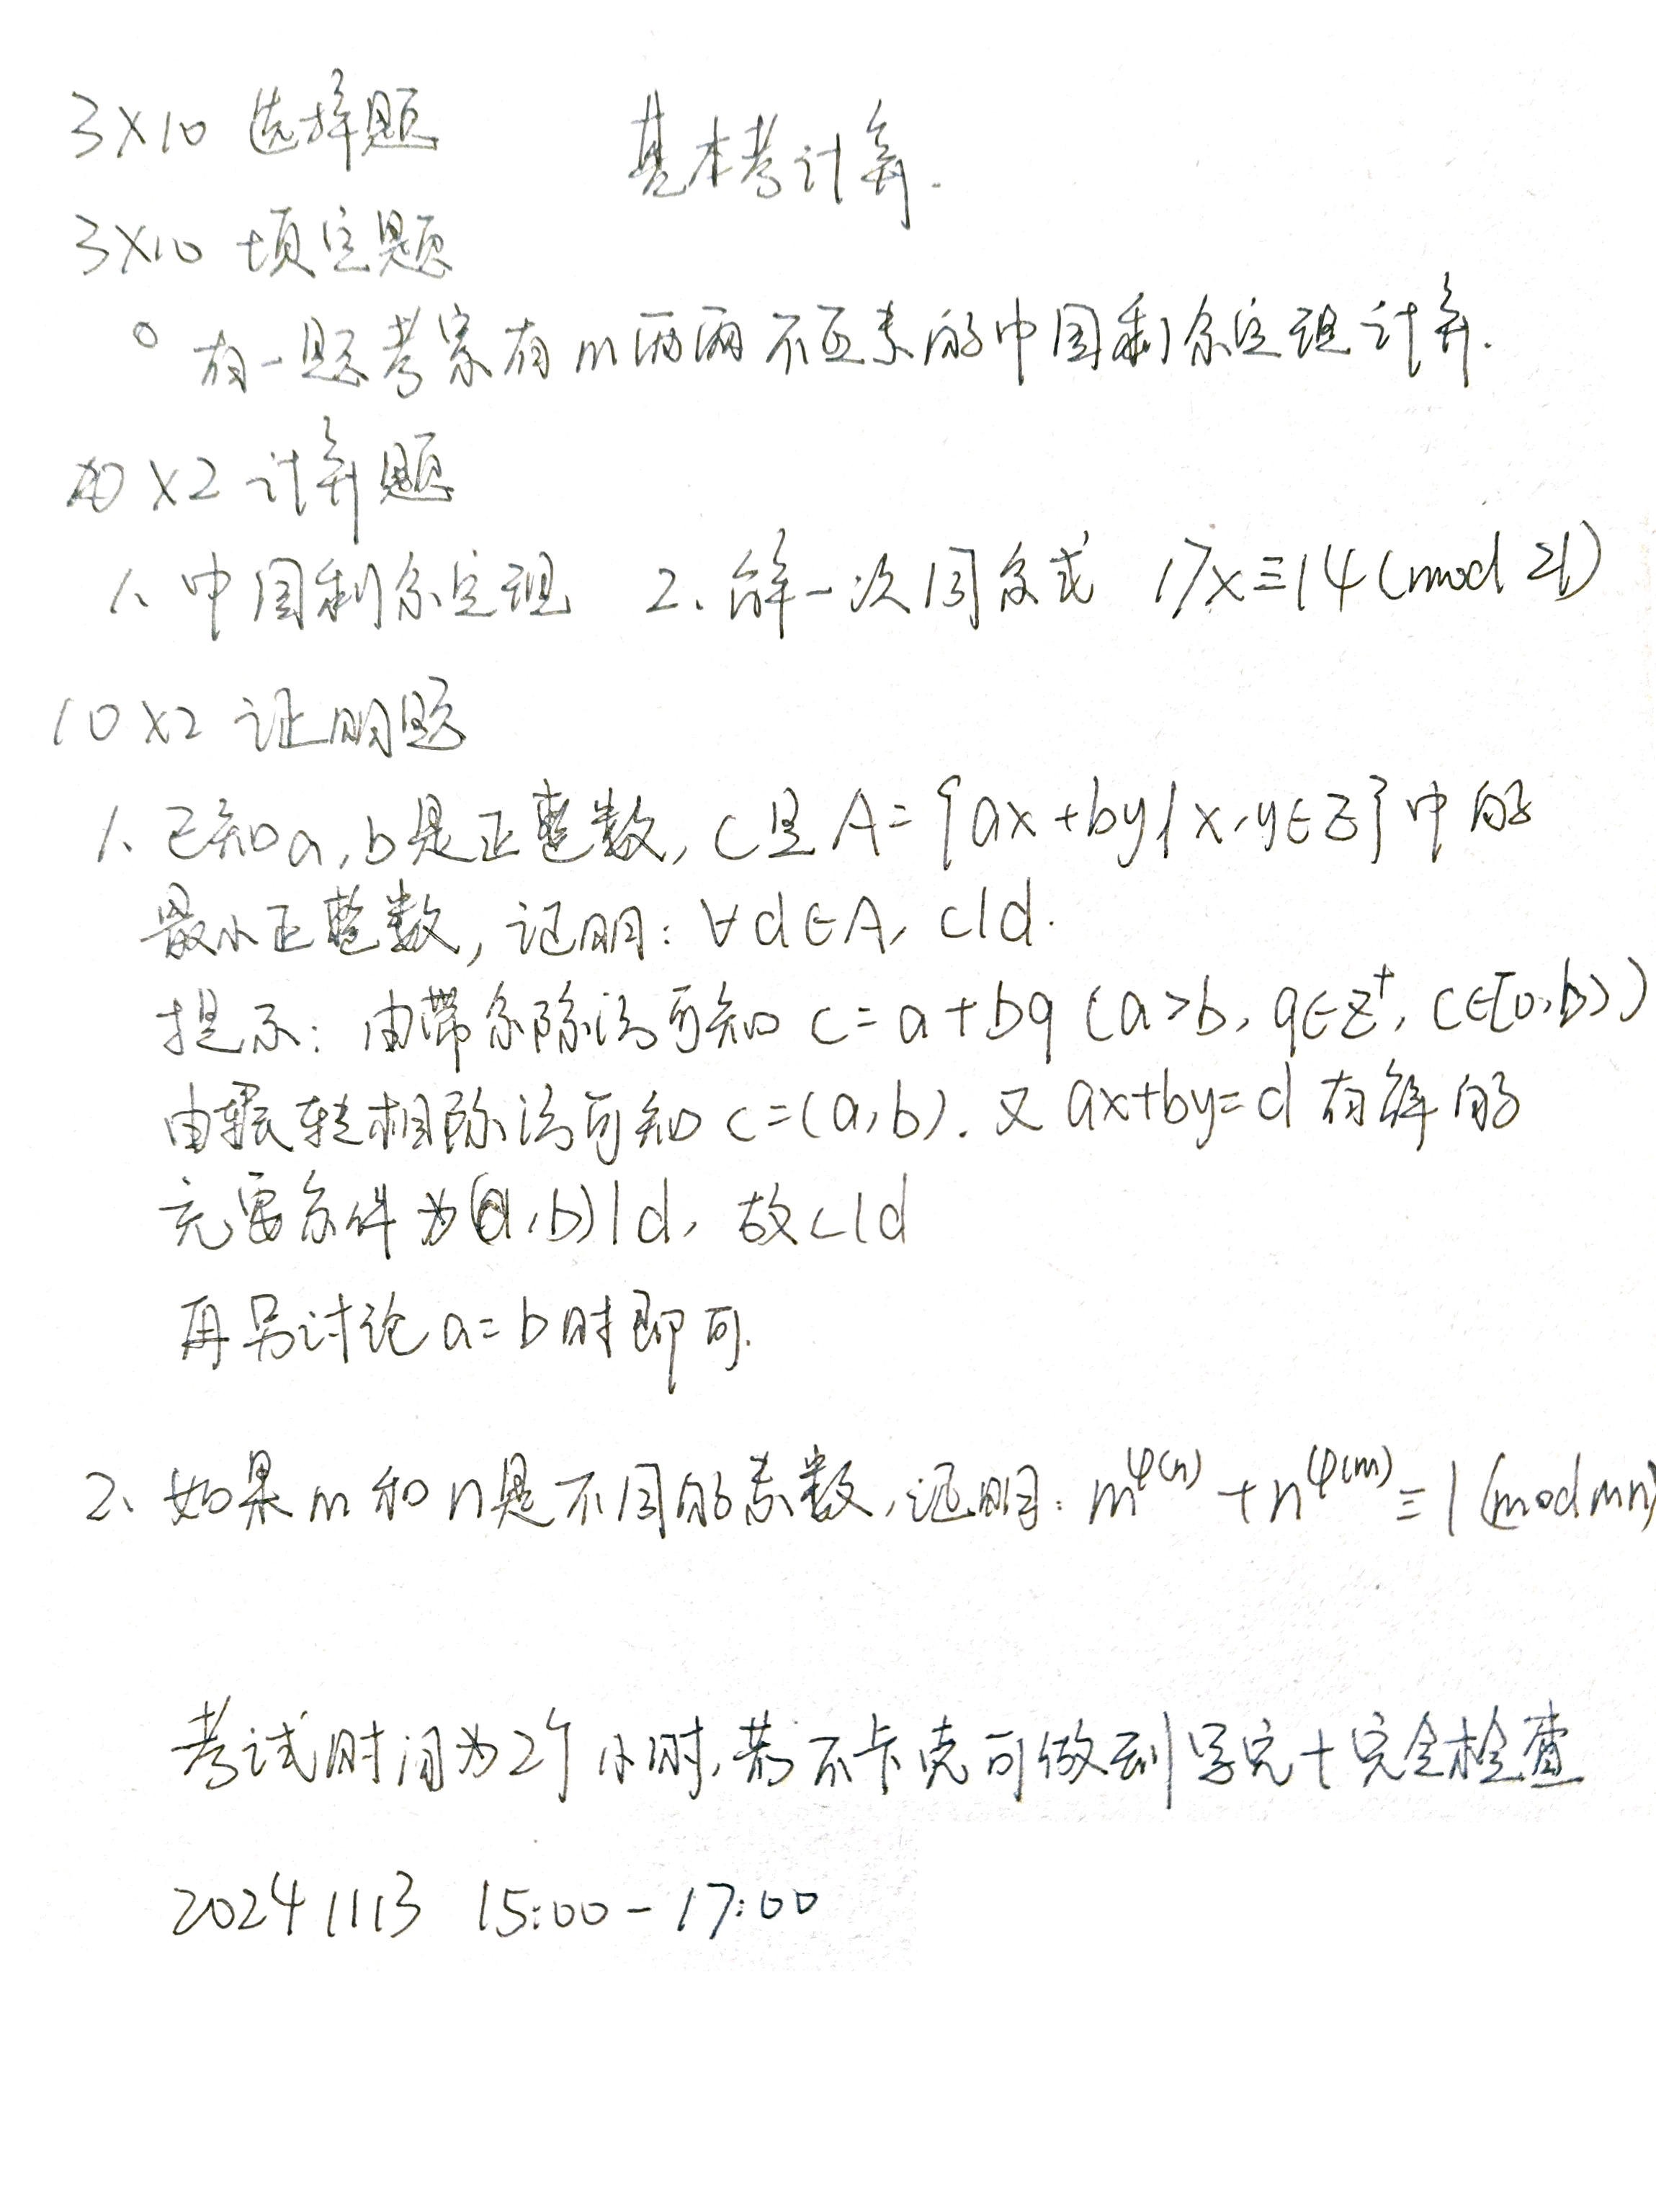 3×10 选择题 基本考计算.
3×10 填空题
。有一题考察有m两两不互素的中国剩余定理计算.
10×2 计算题
1、中国剩余定理 2、解一次同余式 17x≡14(mod 21)
10×2 证明题
1、已知a,b是正整数, c是A={ax+by|x,y∈Z}中的
最小正整数, 证明: ∀d∈A, c|d.
提示: 由带余除法可知 c=a+bq (a>b, q∈Z⁺, c∈[0,b))
由辗转相除法可知 c=(a,b). 又 ax+by=d 有解的
充要条件为(a,b)|d, 故c|d
再另讨论a=b时即可.
2、如果m和n是不同的素数, 证明: m^φ(n)+n^φ(m)≡1(mod mn)
考试时间为2个小时, 若不卡壳可做到写完+完全检查
20241113 15:00-17:00